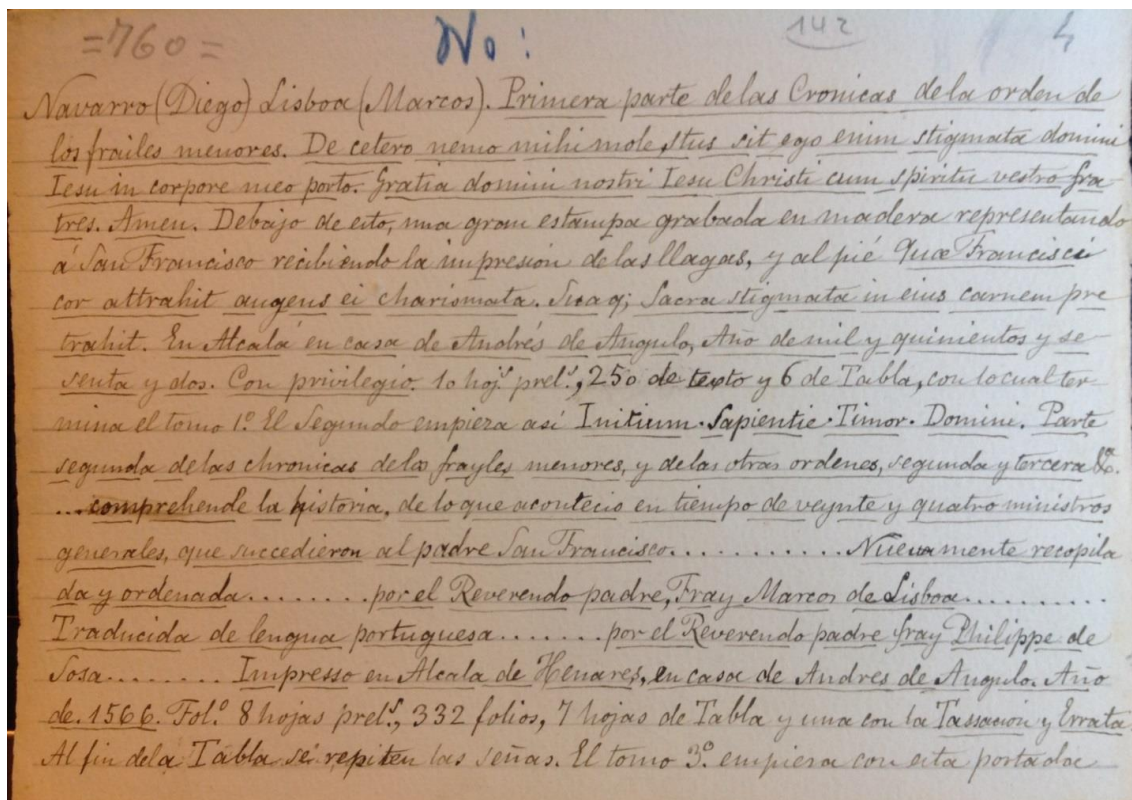 =760= No: 142 4
Navarro (Diego) Lisboa (Marcos). Primera parte de las Cronicas de la orden de
los frailes menores. De cetero nemo mihi mole,stus sit ego enim stigmata domini
Iesu in corpore meo porto. Gratia domini nostri Iesu Christi cum spiritu vestro fra-
tres. Amen. Debajo de esto, una gran estampa grabada en madera representando
á San Francisco recibiendo la impresión de las llagas, y al pié Quæ Francisci
cor attrahit augens ei charismata. Suaq; Sacra stigmata in eius carnem pre
trahit. En Alcalá en casa de Andrés de Angulo, Año de mil y quinientos y se
senta y dos. Con privilegio. 10 hoj.s prel.s, 250 de texto y 6 de Tabla, con lo cual ter-
mina el tomo 1.º El Segundo empieza así Initium · Sapientie · Timor · Domini. Parte
segunda de las chronicas de los frayles menores, y de las otras ordenes, segunda y tercera &.ª
...comprehende la historia, de lo que acontecio en tiempo de veynte y quatro ministros
generales, que succedieron al padre San Francisco............ Nuevamente recopila
da y ordenada........ por el Reverendo padre, Fray Marcos de Lisboa..........
Traducida de lengua portuguesa....... por el Reverendo padre fray Philippe de
Sosa........ Impresso en Alcala de Henares, en casa de Andres de Angulo. Año
de. 1566. Fol.º 8 hojas prel.s, 332 folios, 7 hojas de Tabla y una con la Tassacion y Errata
Al fin de la Tabla se repiten las señas. El tomo 3.º empieza con esta portada